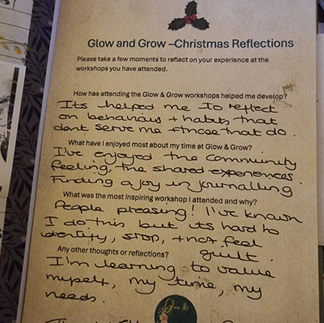 Glow and Grow –Christmas Reflections
Please take a few moments to reflect on your experience at the
workshops you have attended.
How has attending the Glow & Grow workshops helped me develop?
Its helped me to reflect
on behaviours + habits, that
dont serve me + those that do.
What have I enjoyed most about my time at Glow & Grow?
I've enjoyed the community
feeling, the shared experiences.
Finding a joy in journalling
What was the most inspiring workshop I attended and why?
People pleasing! I've known
I do this but its hard to
identify, stop, + not feel
guilt.
Any other thoughts or reflections?
I'm learning to value
myself, my time, my
needs.